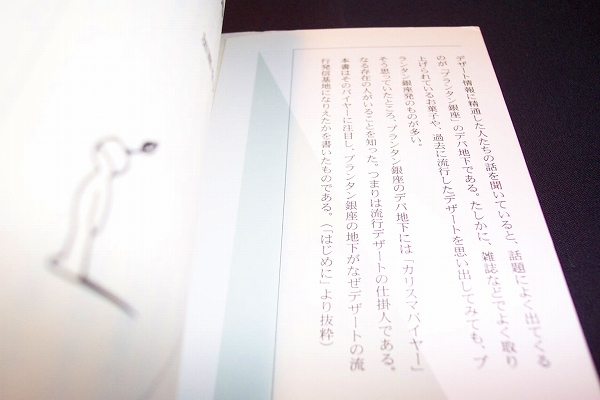 デザート情報に精通した人たちの話を聞いていると、話題によく出てくる
のが「プランタン銀座」のデパ地下である。たしかに、雑誌などでよく取り
上げられているお菓子や、過去に流行したデザートを思い出してみても、プ
ランタン銀座発のものが多い。
そう思っていたところ、プランタン銀座のデパ地下には「カリスマバイヤー」
なる存在の人がいることを知った。つまりは流行デザートの仕掛人である。
本書はそのバイヤーに注目し、プランタン銀座の地下がなぜデザートの流
行発信基地になりえたかを書いたものである。（「はじめに」より抜粋）